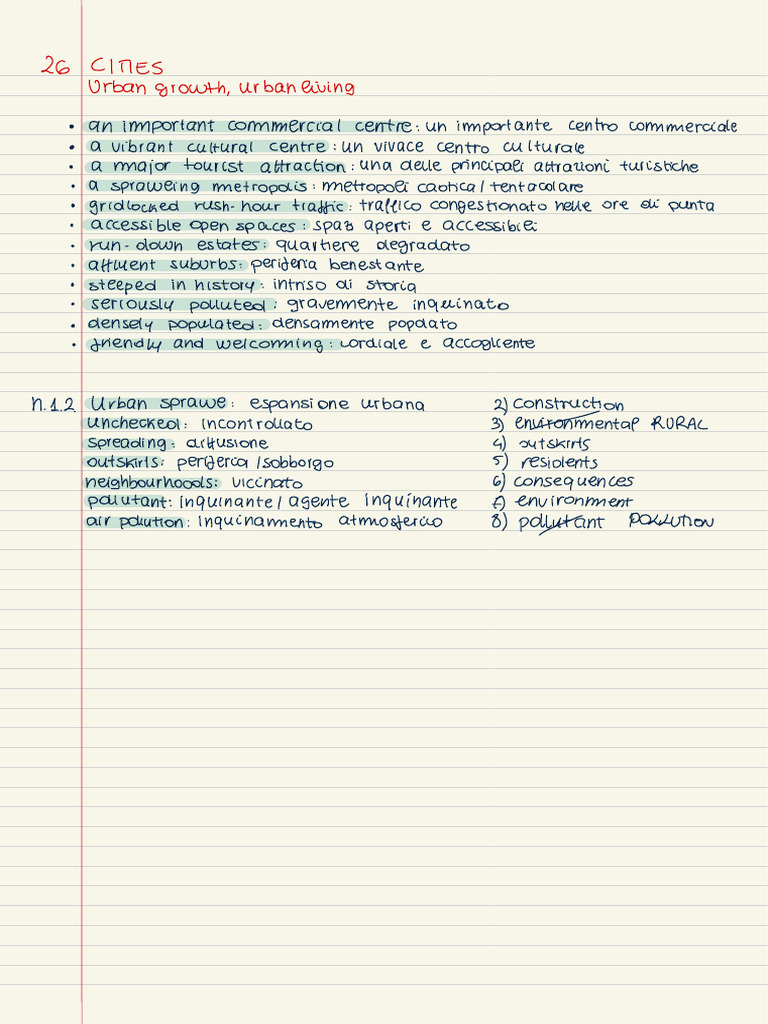 26 CITIES
Urban growth, urban living
• an important commercial centre: un importante centro commerciale
• a vibrant cultural centre: un vivace centro culturale
• a major tourist attraction: una delle principali attrazioni turistiche
• a sprawling metropolis: metropoli caotica/tentacolare
• gridlocked rush-hour traffic: traffico congestionato nelle ore di punta
• accessible open spaces: spazi aperti e accessibili
• run-down estates: quartiere degradato
• affluent suburbs: periferia benestante
• steeped in history: intriso di storia
• seriously polluted: gravemente inquinato
• densely populated: densamente popolato
• friendly and welcoming: cordiale e accogliente
n.1.2 Urban sprawl: espansione urbana 2) construction
unchecked: incontrollato 3) environmental RURAL
spreading: diffusione 4) outskirts
outskirts: periferia/sobborgo 5) residents
neighbourhoods: vicinato 6) consequences
pollutant: inquinante/agente inquinante 7) environment
air pollution: inquinamento atmosferico 8) pollutant POLLUTION